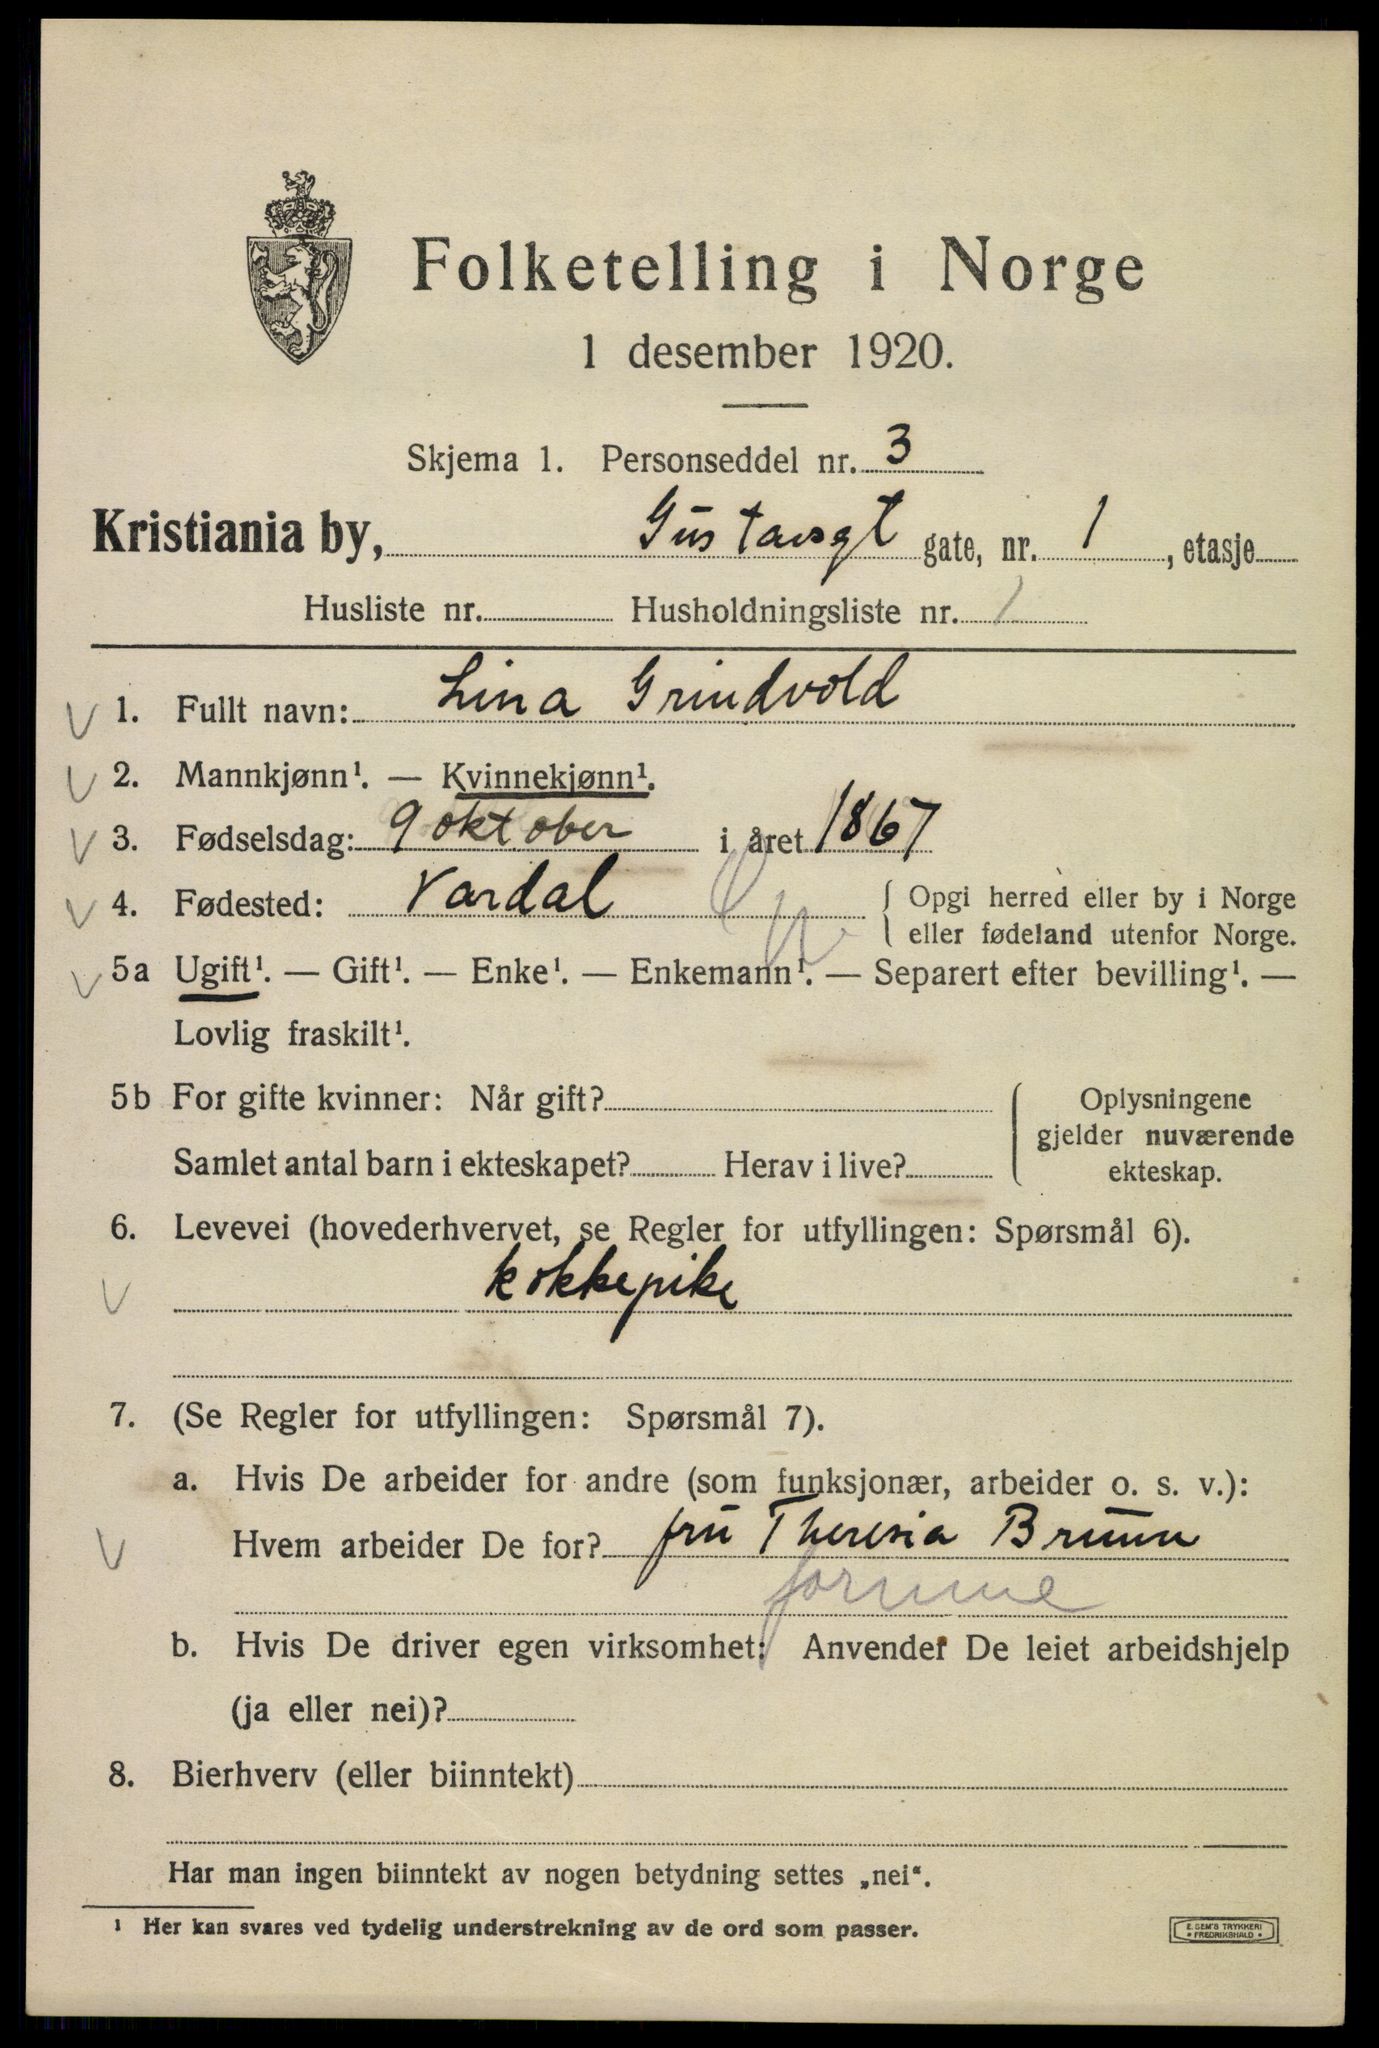 Folketelling i Norge
1 desember 1920.
Skjema 1. Personseddel nr. 3
Kristiania by, Gustavsgt gate, nr. 1, etasje
Husliste nr. Husholdningsliste nr. 1
1. Fullt navn: Lina Grindvold
2. Mannkjønn¹. — Kvinnekjønn¹.
3. Fødselsdag: 9 oktober i året 1867
4. Fødested: Vardal { Opgi herred eller by i Norge
eller fødeland utenfor Norge.
5a Ugift¹. — Gift¹. — Enke¹. — Enkemann¹. — Separert efter bevilling¹. —
Lovlig fraskilt¹.
5b For gifte kvinner: Når gift?
Samlet antal barn i ekteskapet? Herav i live?
Oplysningene
gjelder nuværende
ekteskap.
6. Levevei (hovederhvervet, se Regler for utfyllingen: Spørsmål 6).
kokkepike
7. (Se Regler for utfyllingen: Spørsmål 7).
a. Hvis De arbeider for andre (som funksjonær, arbeider o. s. v.):
Hvem arbeider De for? fru Theresia Bruun
b. Hvis De driver egen virksomhet: Anvender De leiet arbeidshjelp
(ja eller nei)?
8. Bierhverv (eller biinntekt)
Har man ingen biinntekt av nogen betydning settes „nei“.
¹ Her kan svares ved tydelig understrekning av de ord som passer.
E. SEM'S TRYKKERI
• FREDRIKSHALD •